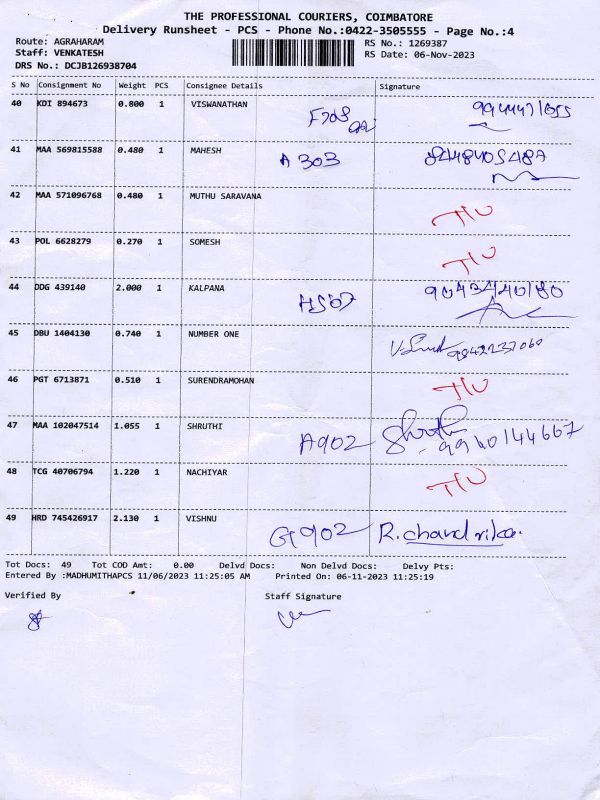 THE PROFESSIONAL COURIERS, COIMBATORE
Delivery Runsheet - PCS - Phone No.:0422-3505555 - Page No.:4
Route: AGRAHARAM
Staff: VENKATESH
DRS No.: DCJB126938704
RS No.: 1269387
RS Date: 06-Nov-2023
S No Consignment No Weight PCS Consignee Details Signature
40 KDI 894673 0.800 1 VISWANATHAN
41 MAA 569815588 0.480 1 MAHESH A 303
42 MAA 571096768 0.480 1 MUTHU SARAVANA T/U
43 POL 6628279 0.270 1 SOMESH T/U
44 DDG 439140 2.000 1 KALPANA
45 DBU 1404130 0.740 1 NUMBER ONE 9842237060
46 PGT 6713871 0.510 1 SURENDRAMOHAN T/U
47 MAA 102047514 1.055 1 SHRUTHI A902 Shruthi 9940144667
48 TCG 40706794 1.220 1 NACHIYAR T/U
49 HRD 745426917 2.130 1 VISHNU G902 R. chandrika.
Tot Docs: 49 Tot COD Amt: 0.00 Delvd Docs: Non Delvd Docs: Delvy Pts:
Entered By :MADHUMITHAPCS 11/06/2023 11:25:05 AM Printed On: 06-11-2023 11:25:19
Verified By Staff Signature